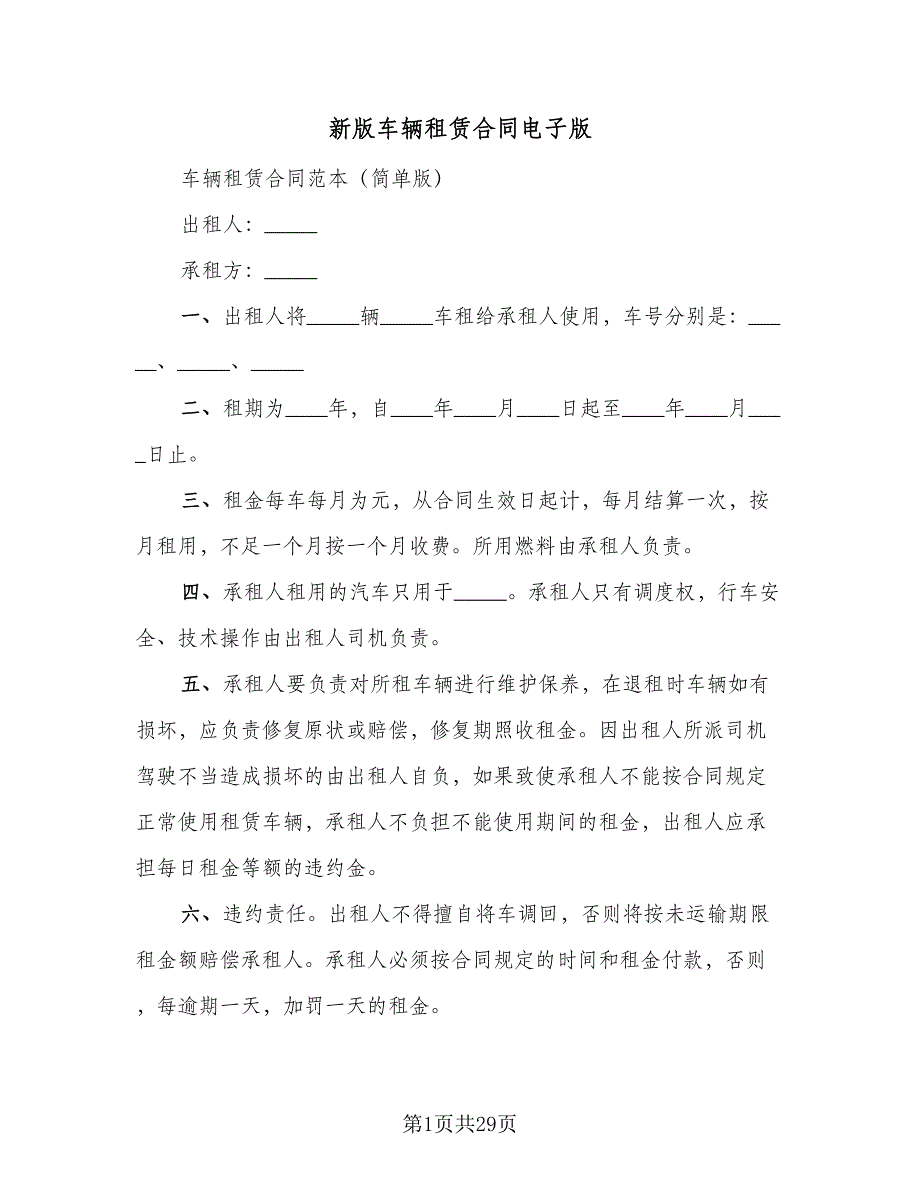 新版车辆租赁合同电子版
车辆租赁合同范本（简单版）
出租人：_____
承租方：_____
一、出租人将_____辆_____车租给承租人使用，车号分别是：___
__、_____、_____
二、租期为____年，自____年____月____日起至____年____月___
_日止。
三、租金每车每月为元，从合同生效日起计，每月结算一次，按
月租用，不足一个月按一个月收费。所用燃料由承租人负责。
四、承租人租用的汽车只用于_____。承租人只有调度权，行车安
全、技术操作由出租人司机负责。
五、承租人要负责对所租车辆进行维护保养，在退租时车辆如有
损坏，应负责修复原状或赔偿，修复期照收租金。因出租人所派司机
驾驶不当造成损坏的由出租人自负，如果致使承租人不能按合同规定
正常使用租赁车辆，承租人不负担不能使用期间的租金，出租人应承
担每日租金等额的违约金。
六、违约责任。出租人不得擅自将车调回，否则将按未运输期限
租金额赔偿承租人。承租人必须按合同规定的时间和租金付款，否则
，每逾期一天，加罚一天的租金。
第1页共29页